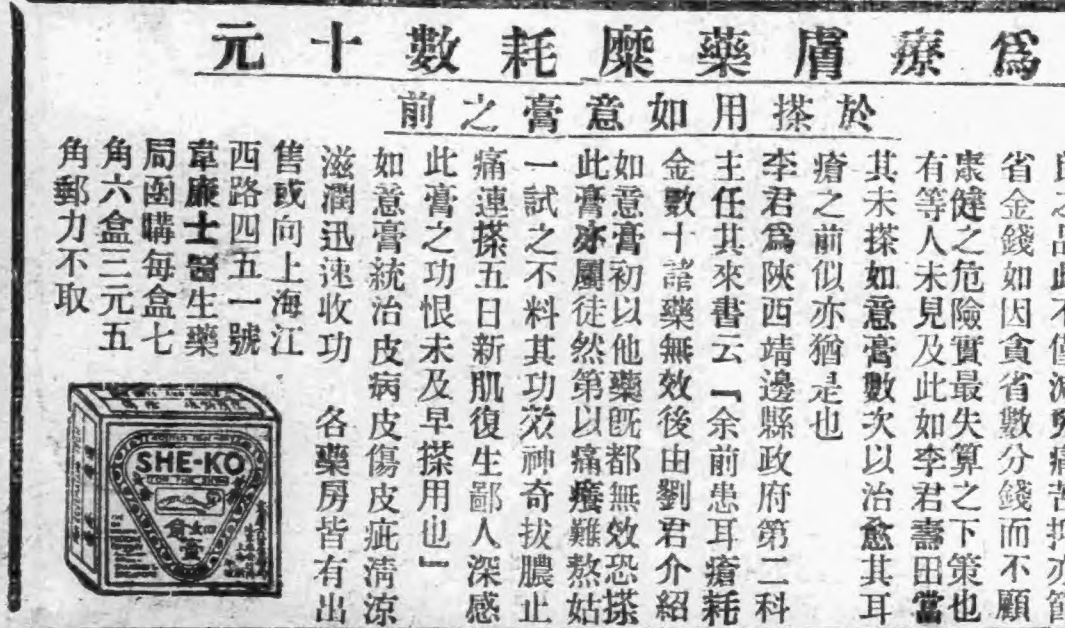 爲療膚藥糜耗數十元
於搽用如意膏之前
之品此不僅減痛苦抑亦節
省金錢如因貪省數分錢而不顧
康健之危險實最失算之下策也
有等人未見及此如李君壽田當
其未搽如意膏數次以治愈其耳
瘡之前似亦猶是也
李君爲陝西靖邊縣政府第二科
主任其來書云『余前患耳瘡耗
金數十諸藥無效後由劉君介紹
如意膏初以他藥旣都無效恐搽
此膏亦屬徒然第以痛癢難熬姑
一試之不料其功效神奇拔膿止
痛連搽五日新肌復生鄙人深感
此膏之功恨未及早搽用也』
如意膏統治皮病皮傷皮疵淸涼
滋潤迅速收功 各藥房皆有出
售或向上海江
西路四五一號
韋廉士醫生藥
局函購每盒七
角六盒三元五
角郵力不取
SHE-KO
FOR THE SKIN
膏意如